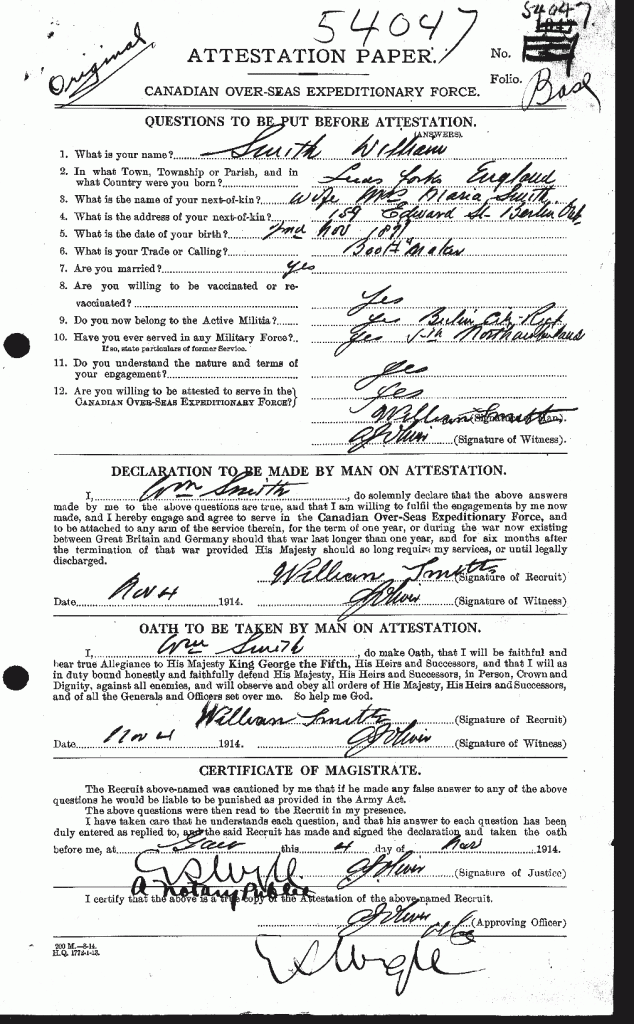 54047
54047
Original
ATTESTATION PAPER.
No.
Folio.
Base
CANADIAN OVER-SEAS EXPEDITIONARY FORCE.
QUESTIONS TO BE PUT BEFORE ATTESTATION.
(ANSWERS).
1. What is your name? Smith William
2. In what Town, Township or Parish, and in
what Country were you born? England
3. What is the name of your next-of-kin? Wife Mrs Maria Smith
4. What is the address of your next-of-kin? 159 Edward St Berlin Ont
5. What is the date of your birth? 2nd Nov
6. What is your Trade or Calling? Boot Maker
7. Are you married? Yes
8. Are you willing to be vaccinated or re-
vaccinated? Yes
9. Do you now belong to the Active Militia? Yes Berlin
10. Have you ever served in any Military Force? Yes
If so, state particulars of former Service.
11. Do you understand the nature and terms of
your engagement? Yes
12. Are you willing to be attested to serve in the
CANADIAN OVER-SEAS EXPEDITIONARY FORCE? } Yes
William Smith (Signature of Man).
(Signature of Witness).
DECLARATION TO BE MADE BY MAN ON ATTESTATION.
I, Wm Smith, do solemnly declare that the above answers
made by me to the above questions are true, and that I am willing to fulfil the engagements by me now
made, and I hereby engage and agree to serve in the Canadian Over-Seas Expeditionary Force, and
to be attached to any arm of the service therein, for the term of one year, or during the war now existing
between Great Britain and Germany should that war last longer than one year, and for six months after
the termination of that war provided His Majesty should so long require my services, or until legally
discharged.
William Smith (Signature of Recruit)
Date Nov 4 1914. (Signature of Witness)
OATH TO BE TAKEN BY MAN ON ATTESTATION.
I, Wm Smith, do make Oath, that I will be faithful and
bear true Allegiance to His Majesty King George the Fifth, His Heirs and Successors, and that I will as
in duty bound honestly and faithfully defend His Majesty, His Heirs and Successors, in Person, Crown and
Dignity, against all enemies, and will observe and obey all orders of His Majesty, His Heirs and Successors,
and of all the Generals and Officers set over me. So help me God.
William Smith (Signature of Recruit)
Date Nov 4 1914. (Signature of Witness)
CERTIFICATE OF MAGISTRATE.
The Recruit above-named was cautioned by me that if he made any false answer to any of the above
questions he would be liable to be punished as provided in the Army Act.
The above questions were then read to the Recruit in my presence.
I have taken care that he understands each question, and that his answer to each question has been
duly entered as replied to, and the said Recruit has made and signed the declaration and taken the oath
before me, at Galt this 4 day of Nov 1914.
(Signature of Justice)
A Notary Public
I certify that the above is a true copy of the Attestation of the above-named Recruit.
(Approving Officer)
200 M.—8-14.
H.Q. 1772-1-13.